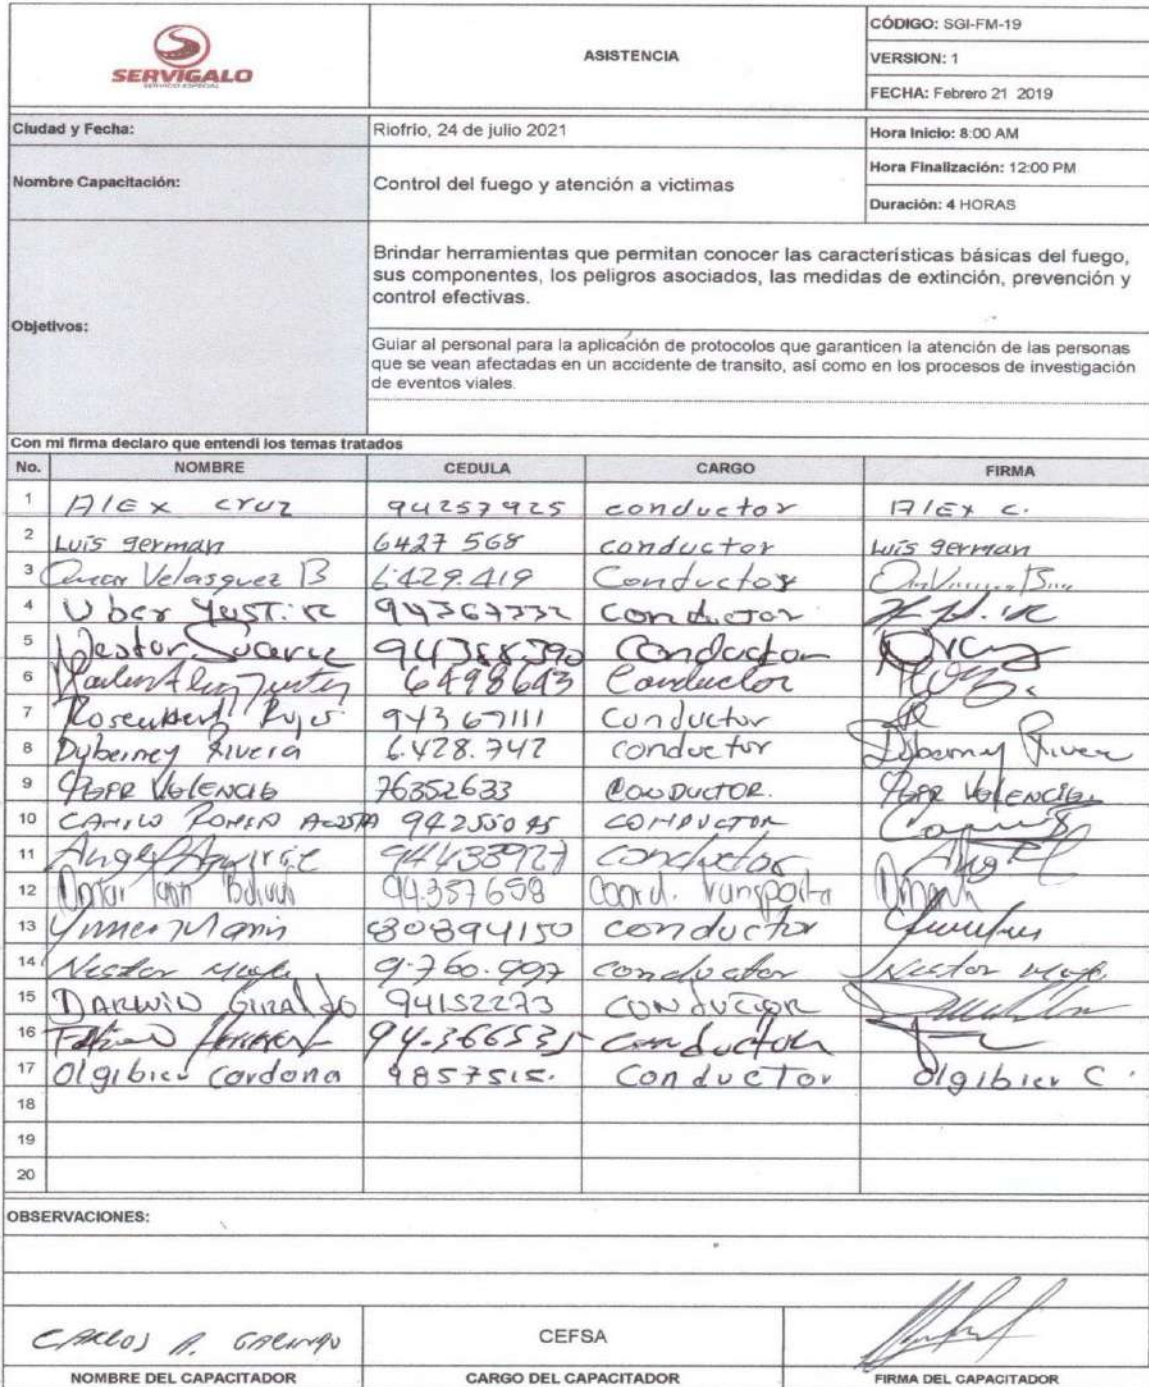 SERVIGALO
SERVICIO ESPECIAL
ASISTENCIA
CÓDIGO: SGI-FM-19
VERSION: 1
FECHA: Febrero 21 2019
Ciudad y Fecha: Riofrio, 24 de julio 2021 Hora Inicio: 8:00 AM
Nombre Capacitación: Control del fuego y atención a victimas
Hora Finalización: 12:00 PM
Duración: 4 HORAS
Objetivos:
Brindar herramientas que permitan conocer las características básicas del fuego,
sus componentes, los peligros asociados, las medidas de extinción, prevención y
control efectivas.
Guiar al personal para la aplicación de protocolos que garanticen la atención de las personas
que se vean afectadas en un accidente de transito, así como en los procesos de investigación
de eventos viales.
Con mi firma declaro que entendi los temas tratados
No. NOMBRE CEDULA CARGO FIRMA
1 Alex cruz 94257925 conductor Alex c.
2 Luis german 6427 568 conductor Luis german
3 Omar Velasquez B 6.429.419 Conductor
4 Uber 94367332 conductor
5 Nestor Suarez 94388390 Conductor
6 6498643 Conductor
7 Rojas 94367111 Conductor
8 Dyberney Rivera 6.428.742 conductor Dyberney Rivera
9 VALENCIA 76352633 CONDUCTOR. VALENCIA
10 CAMILO ROMERO ACOSTA 94255095 CONDUCTOR
11 Angel Aguirre 94433927 conductor Angel
12 Omar 94.357658 Coord. Transporte
13 Marin 80894150 conductor
14 Nestor 9.760.997 conductor Nestor
15 DARWIN GIRALDO 94152273 CONDUCTOR
16 94.366535 conductor
17 Olgibier Cordona 9857515. Conductor Olgibier C.
18
19
20
OBSERVACIONES:
CARLOS A. CEFSA
NOMBRE DEL CAPACITADOR CARGO DEL CAPACITADOR FIRMA DEL CAPACITADOR